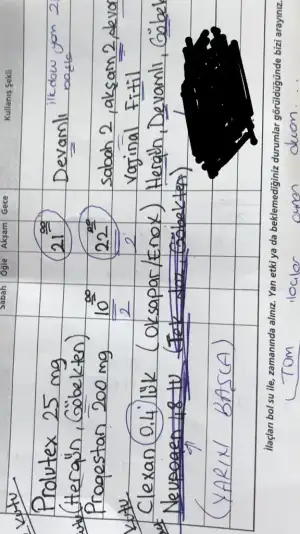 Sabah Öğle Akşam Gece Kullanış Şekli
Kutu
Prolutex 25 mg 21⁰⁰ Devamlı
(Hergün, Göbekten)
Progestan 200 mg 10⁰⁰ 22⁰⁰ Sabah 2, akşam 2, devam
2 2 Vajinal Fitil
Kutu
Clexan 0.4'lük (Oksapar/Enox) Hergün, Devamlı, Göbek
Neupogen
(YARIN BAŞLA)
İlaçları bol su ile, zamanında alınız. Yan etki ya da beklemediğiniz durumlar görüldüğünde bizi arayınız.
Tüm ilaçlar aynen devam...